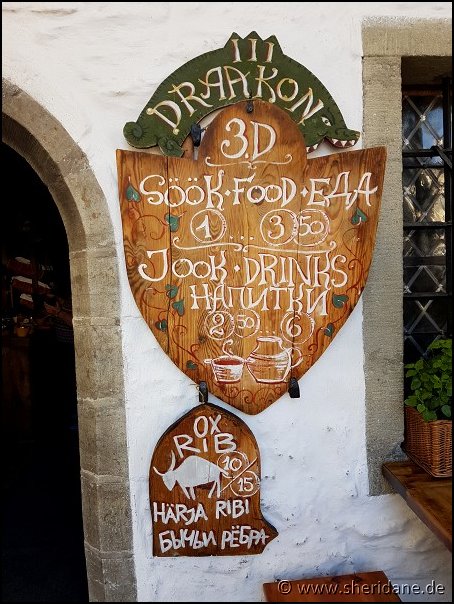 III
DRAAKON
3D
SÖÖK·FOOD·ЕДА
1 3 50
JOOK·DRINKS
НАПИТКИ
2 50 6
OX
RIB
10/15
HÄRJA RIBI
БЫЧЬИ РЁБРА
© www.sheridane.de